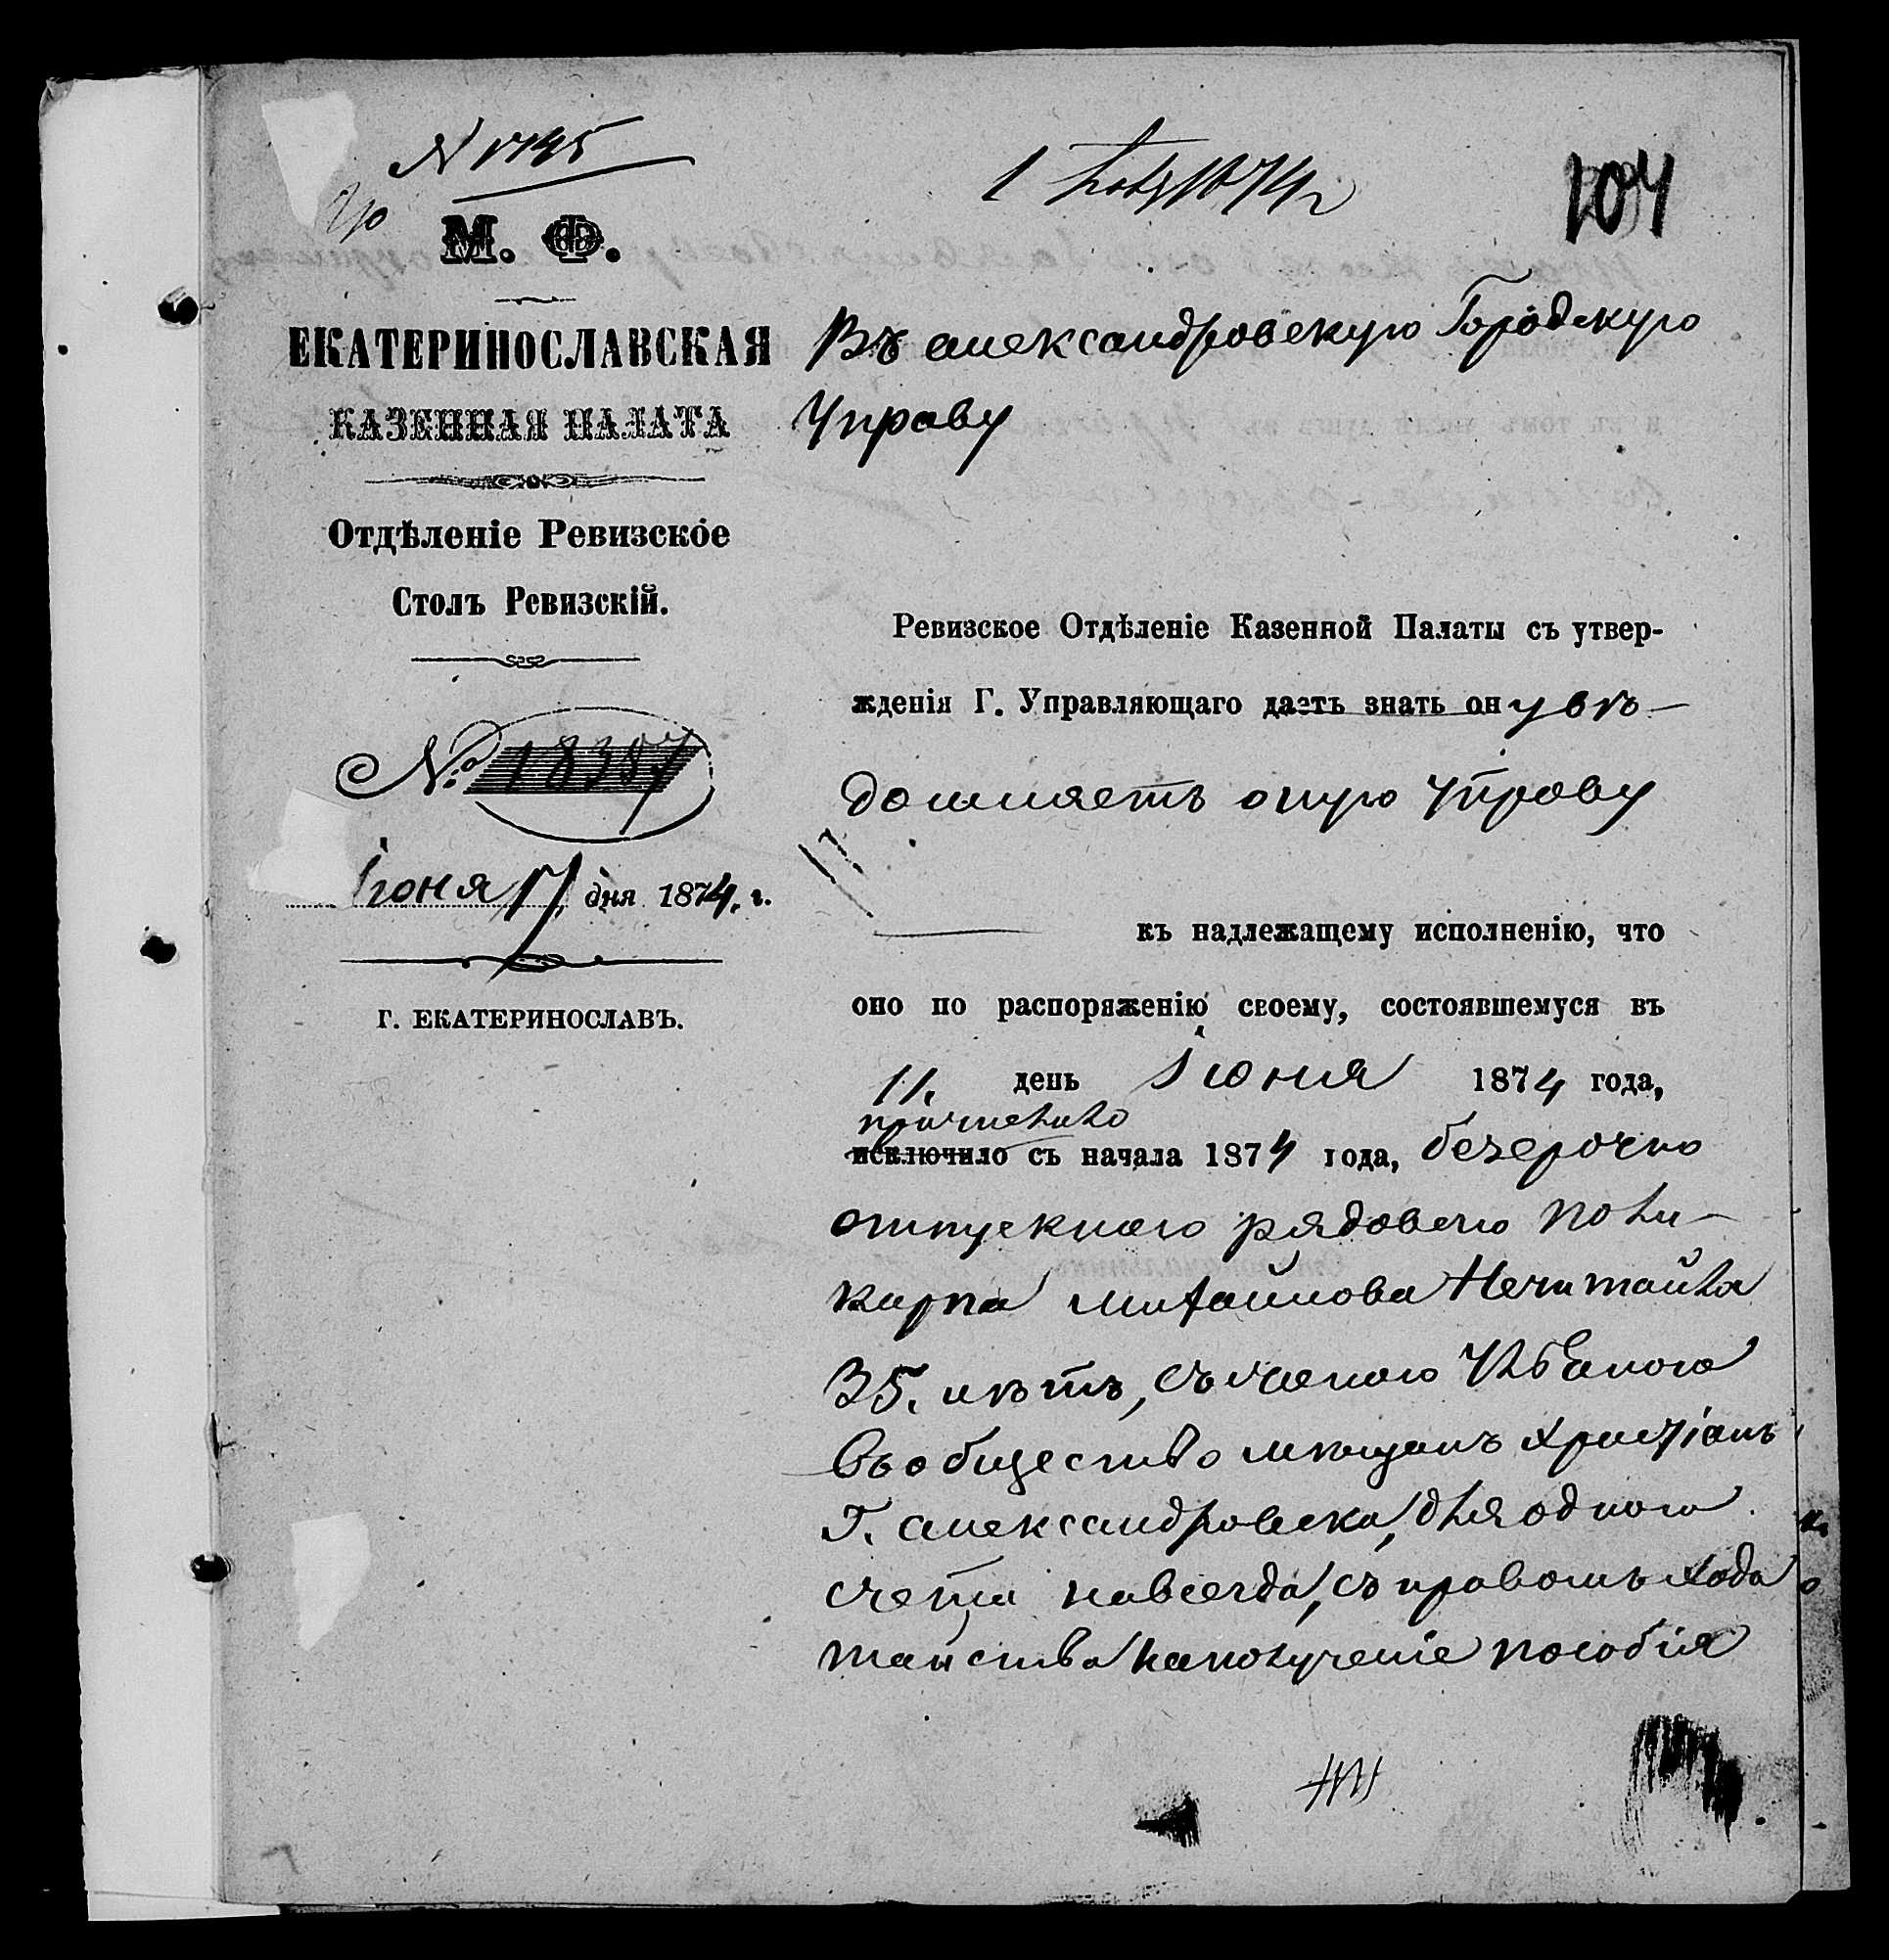 N 1795
104
М. Ф.
ЕКАТЕРИНОСЛАВСКАЯ
КАЗЕННАЯ ПАЛАТА
Отдѣленіе Ревизское
Столъ Ревизскій.
№ 18307
Іюня 17 дня 1874 г.
Г. ЕКАТЕРИНОСЛАВЪ.
1874
Въ Александровскую Городскую
Управу
Ревизское Отдѣленіе Казенной Палаты съ утвер-
жденія Г. Управляющаго даетъ знать он увѣ-
домляетъ оную Управу
къ надлежащему исполненію, что
оно по распоряженію своему, состоявшемуся въ
11. день Іюня 1874 года,
причислило
исключило съ начала 1874 года, безсрочно
отпускного рядового Поли-
карпа Михайлова Нечитайла
35. лѣтъ, съ женою
въ общество мѣщанъ христіанъ
Г. Александровска, для одного
счета навсегда, съ правомъ хода
тайства на полученіе пособія